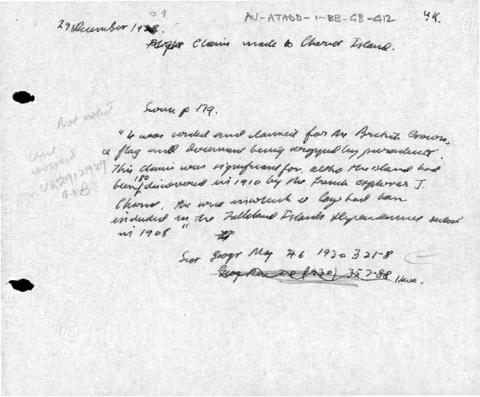 AU-ATADD-1-BB-GB-412
UK.
29
29 December 1928.
Flight Claim made to Charcot Island.
Swan p 179.
Not noted
UK29121929
"It was visited and claimed for the British Crown,
a flag and document being dropped by parachute.
This claim was significant for, altho the island had
been discovered in 1910 by the French explorer J.
Charcot, the area in which it lay had been
included in the Falkland Islands Dependencies
in 1908"
Scot Geogr Mag 46 1930 321-8
Geog Rev 20 (1930) 357-88 I have.